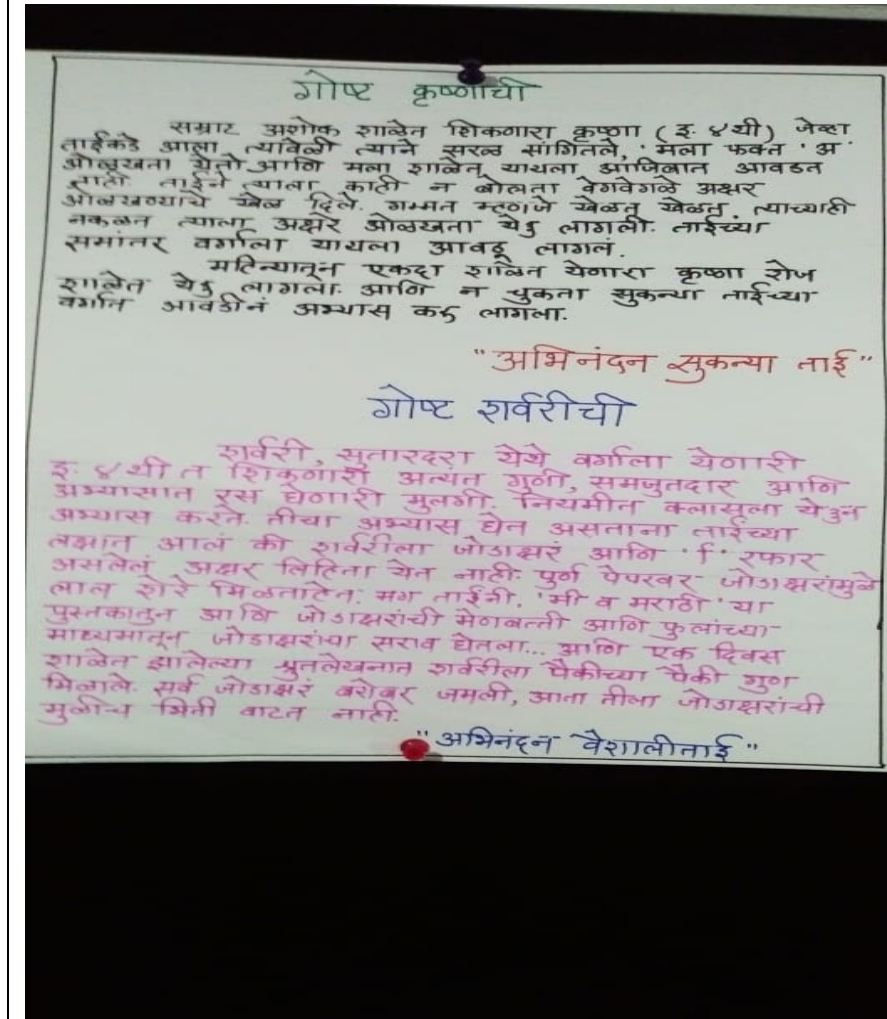 गोष्ट कृष्णाची
सम्राट अशोक शाळेत शिकणारा कृष्णा (इ. ४थी) जेव्हा
ताईकडे आला त्यावेळी त्याने सरळ सांगितले, 'मला फक्त 'अ'
ओळखता येतो आणि मला शाळेत यायला आजिबात आवडत
नाही. ताईने त्याला काही न बोलता वेगवेगळे अक्षर
ओळखण्याचे खेळ दिले. गम्मत म्हणजे खेळत खेळत त्याच्याही
नकळत त्याला अक्षरे ओळखता येऊ लागली. ताईच्या
समांतर वर्गाला यायला आवडू लागलं.
महिन्यातून एकदा शाळेत येणारा कृष्णा रोज
शाळेत येऊ लागला. आणि न चुकता सुकन्या ताईच्या
वर्गात आवडीनं अभ्यास करु लागला.
"अभिनंदन सुकन्या ताई"
गोष्ट शर्वरीची
शर्वरी, सुतारदरा येथे वर्गाला येणारी
इ. ४थी त शिकणारी अत्यंत गुणी, समजुतदार आणि
अभ्यासात रस घेणारी मुलगी. नियमीत क्लासला येउन
अभ्यास करते. तीचा अभ्यास घेत असताना ताईच्या
लक्षात आलं की शर्वरीला जोडाक्षरं आणि 'र्' रफार
असलेलं अक्षर लिहिता येत नाही. पुर्ण पेपरवर जोडाक्षरांमुळे
लाल शेरे मिळतातेत. मग ताईनी, 'मी व मराठी' या
पुस्तकातुन आणि जोडाक्षरांची मेणबत्ती आणि फुलांच्या
माध्यमातून जोडाक्षरांचा सराव घेतला... आणि एक दिवस
शाळेत झालेल्या श्रुतलेखनात शर्वरीला पैकीच्या पैकी गुण
मिळाले. सर्व जोडाक्षरं बरोबर जमली, आता तीला जोडाक्षरांची
मुळीच भिती वाटत नाही.
"अभिनंदन वैशालीताई"